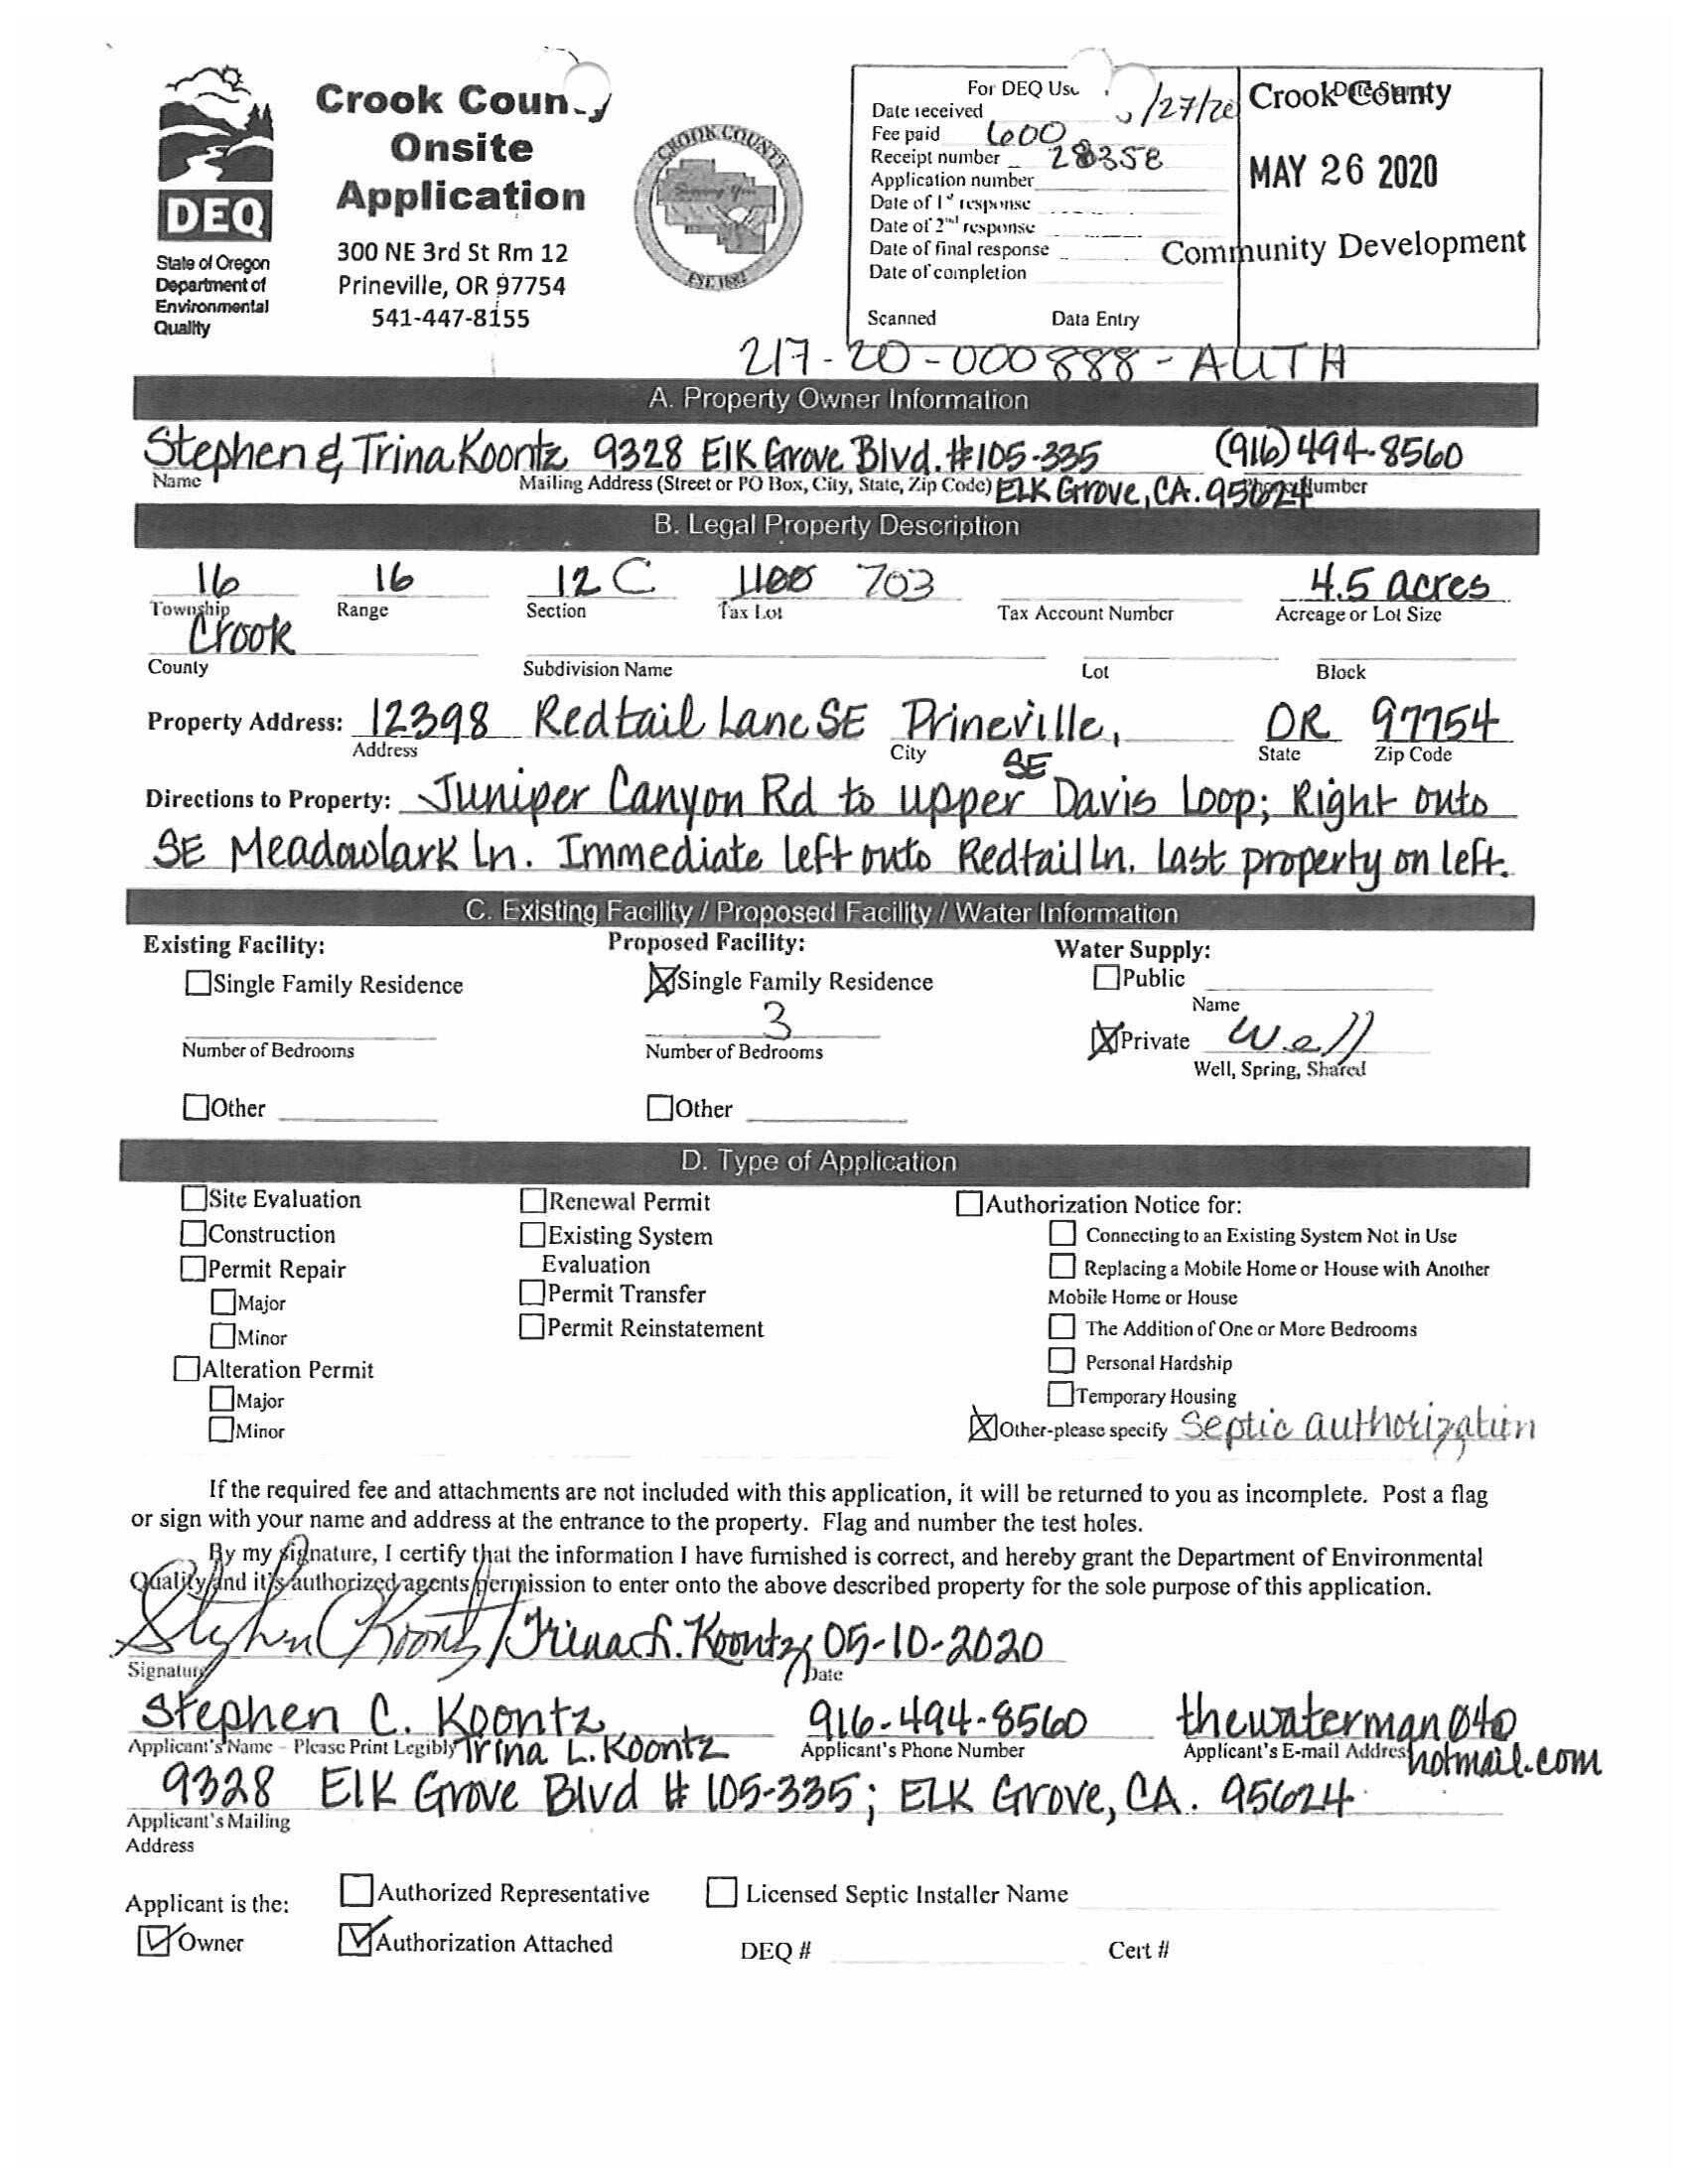 Crook County
Onsite
Application
300 NE 3rd St Rm 12
Prineville, OR 97754
541-447-8155
DEQ
State of Oregon
Department of
Environmental
Quality
CROOK COUNTY
Serving You
EST. 1882
For DEQ Use
Date received /27/20
Fee paid 600
Receipt number 28358
Application number
Date of 1st response
Date of 2nd response
Date of final response
Date of completion
Scanned Data Entry
Crook County
MAY 26 2020
Community Development
217-20-000888-AUTH
A. Property Owner Information
Stephen & Trina Koontz 9328 Elk Grove Blvd. #105-335 (916) 494-8560
Name Mailing Address (Street or PO Box, City, State, Zip Code) ELK Grove, CA. 95624 Phone Number
B. Legal Property Description
16 16 12 C 1100 703 4.5 acres
Township Range Section Tax Lot Tax Account Number Acreage or Lot Size
Crook
County Subdivision Name Lot Block
Property Address: 12398 Redtail Lane SE Prineville, OR 97754
Address City State Zip Code
Directions to Property: Juniper Canyon Rd to upper SE Davis Loop; Right onto
SE Meadowlark Ln. Immediate left onto Redtail Ln. Last property on left.
C. Existing Facility / Proposed Facility / Water Information
Existing Facility: Proposed Facility: Water Supply:
Single Family Residence Single Family Residence Public
Name
3 Private Well
Number of Bedrooms Number of Bedrooms Well, Spring, Shared
Other Other
D. Type of Application
Site Evaluation Renewal Permit Authorization Notice for:
Construction Existing System Connecting to an Existing System Not in Use
Permit Repair Evaluation Replacing a Mobile Home or House with Another
Major Permit Transfer Mobile Home or House
Minor Permit Reinstatement The Addition of One or More Bedrooms
Alteration Permit Personal Hardship
Major Temporary Housing
Minor Other-please specify Septic authorization
If the required fee and attachments are not included with this application, it will be returned to you as incomplete. Post a flag
or sign with your name and address at the entrance to the property. Flag and number the test holes.
By my signature, I certify that the information I have furnished is correct, and hereby grant the Department of Environmental
Quality and it's authorized agents permission to enter onto the above described property for the sole purpose of this application.
Stephen C Koontz / Trina L. Koontz 05-10-2020
Signature Date
Stephen C. Koontz 916-494-8560 thewaterman040
Applicant's Name - Please Print Legibly Trina L. Koontz Applicant's Phone Number Applicant's E-mail Address hotmail.com
9328 Elk Grove Blvd # 105-335; ELK Grove, CA. 95624
Applicant's Mailing
Address
Applicant is the: Authorized Representative Licensed Septic Installer Name
Owner Authorization Attached DEQ # Cert #